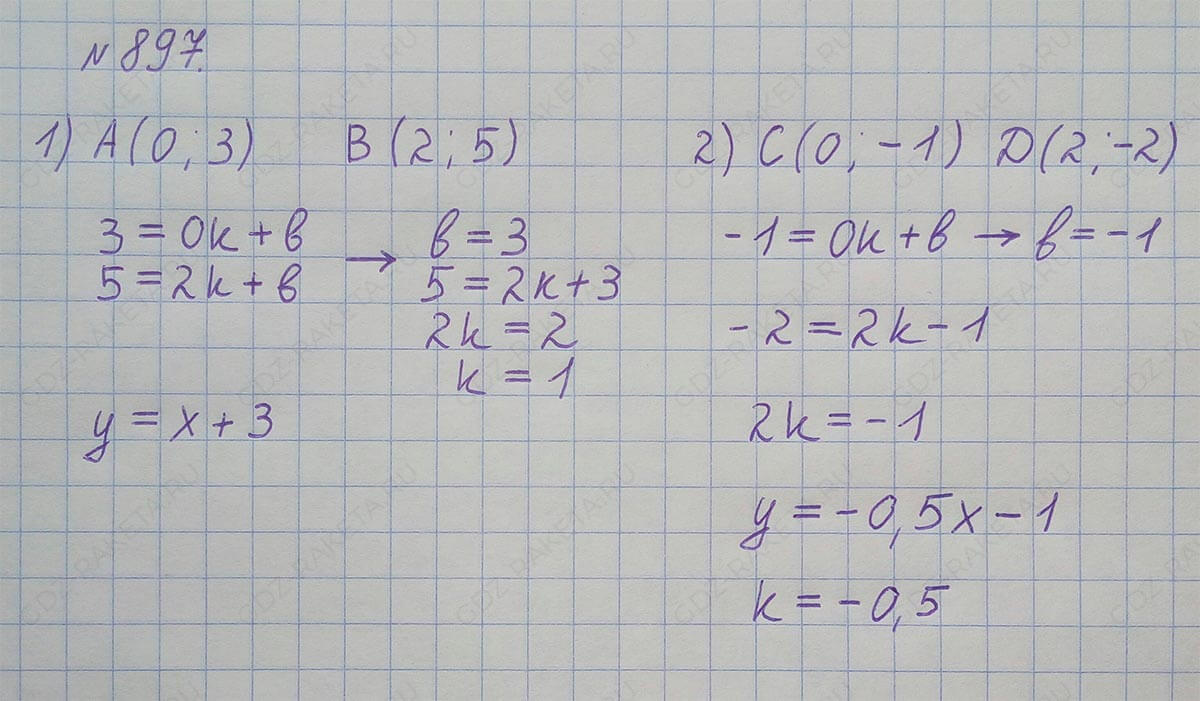 № 897.
1) A(0; 3) B(2; 5)
3 = 0k + в
5 = 2k + в
→
в = 3
5 = 2k + 3
2k = 2
k = 1
y = x + 3
2) C(0; -1) D(2; -2)
-1 = 0k + в → в = -1
-2 = 2k - 1
2k = -1
y = -0,5x - 1
k = -0,5
GDZ-RAKETA.RU